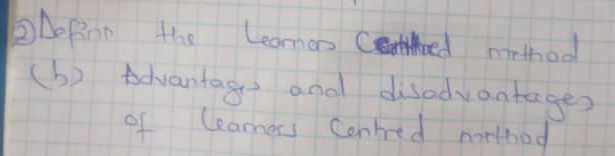 2) Define the learners Centred method
(b) Advantages and disadvantages
of learners Centred method